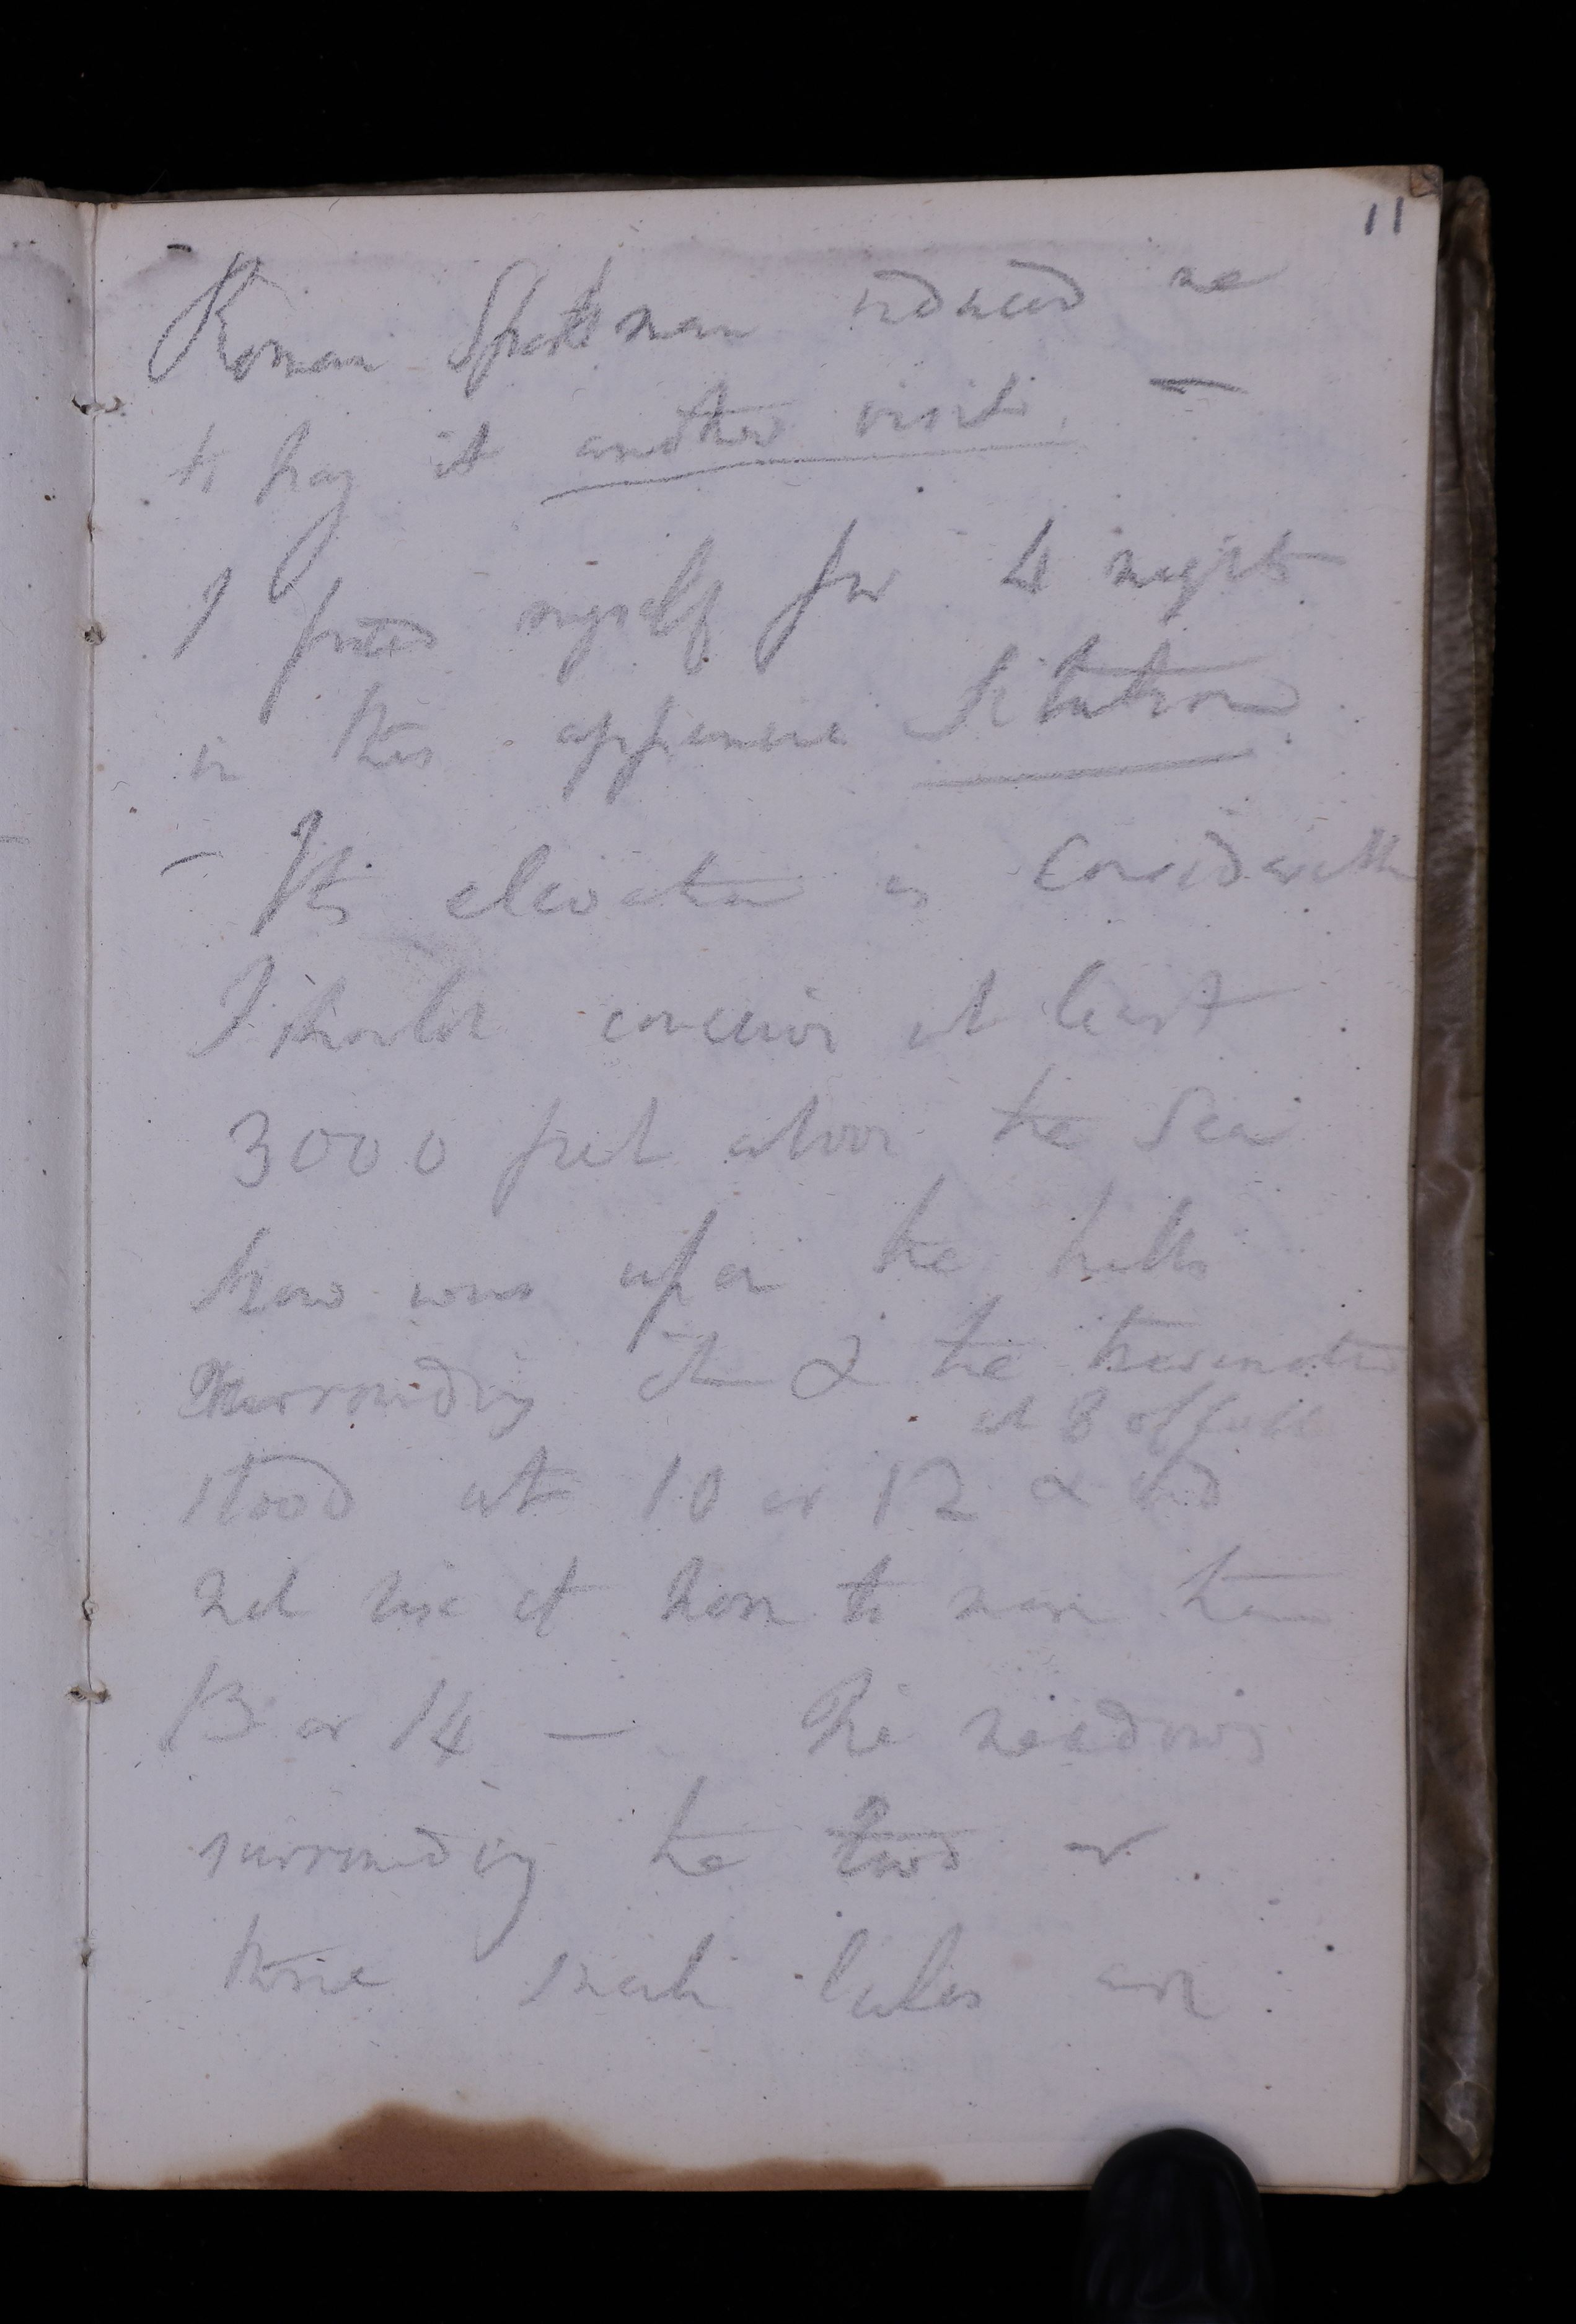 11
Roman Sportsman induced me
to pay it another visit. —
I fixed myself for 4 nights
in this appenine situation.
– Its elevation is considerable
I should conceive at least
3000 feet above the Sea
Snow was upon the hills
surrounding it & the thermometer
at 8 of
stood at 10 or 12 & did
not rise at noon to more than
13 or 14 — The meadows
surrounding the two or
three small lakes are